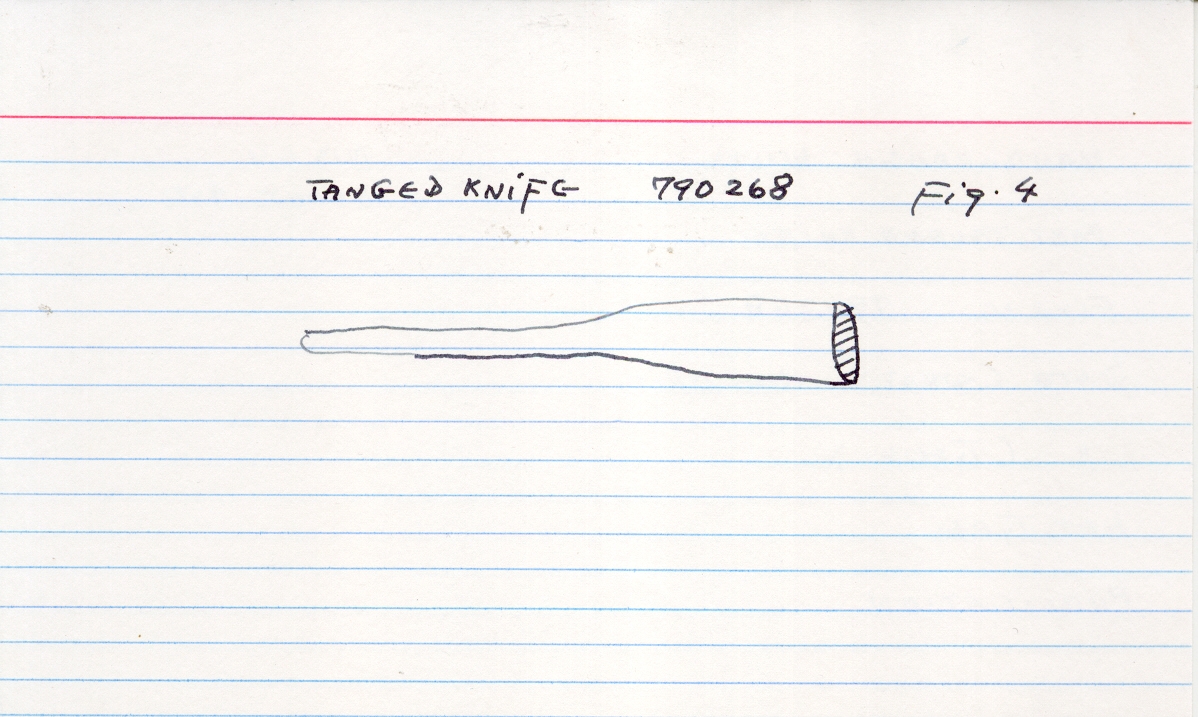 TANGED KNiFE 790268 Fig. 4